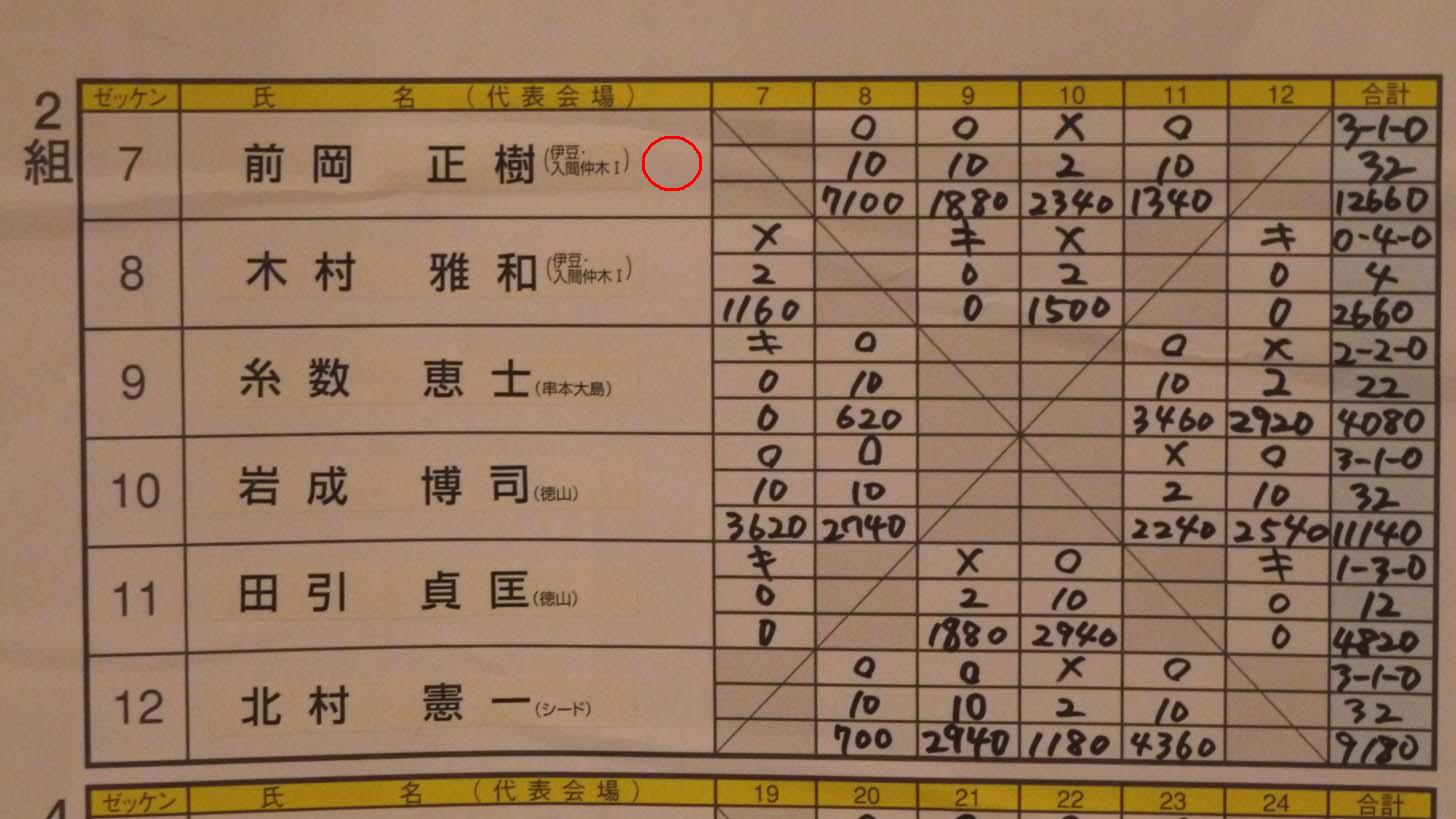 2組
ゼッケン 氏 名 (代表会場) 7 8 9 10 11 12 合計
7 前岡 正樹 (伊豆・入間仲木Ⅰ) O O X O 3-1-0
10 10 2 10 32
7100 1880 2340 1340 12660
8 木村 雅和 (伊豆・入間仲木Ⅰ) X キ X キ 0-4-0
2 0 2 0 4
1160 0 1500 0 2660
9 糸数 恵士 (串本大島) キ O O X 2-2-0
0 10 10 2 22
0 620 3460 2920 4080
10 岩成 博司 (徳山) O O X O 3-1-0
10 10 2 10 32
3620 2740 2240 2540 11140
11 田引 貞匡 (徳山) キ X O キ 1-3-0
0 2 10 0 12
0 1880 2940 0 4820
12 北村 憲一 (シード) O O X O 3-1-0
10 10 2 10 32
700 2940 1180 4360 9180
ゼッケン 氏 名 (代表会場) 19 20 21 22 23 24 合計